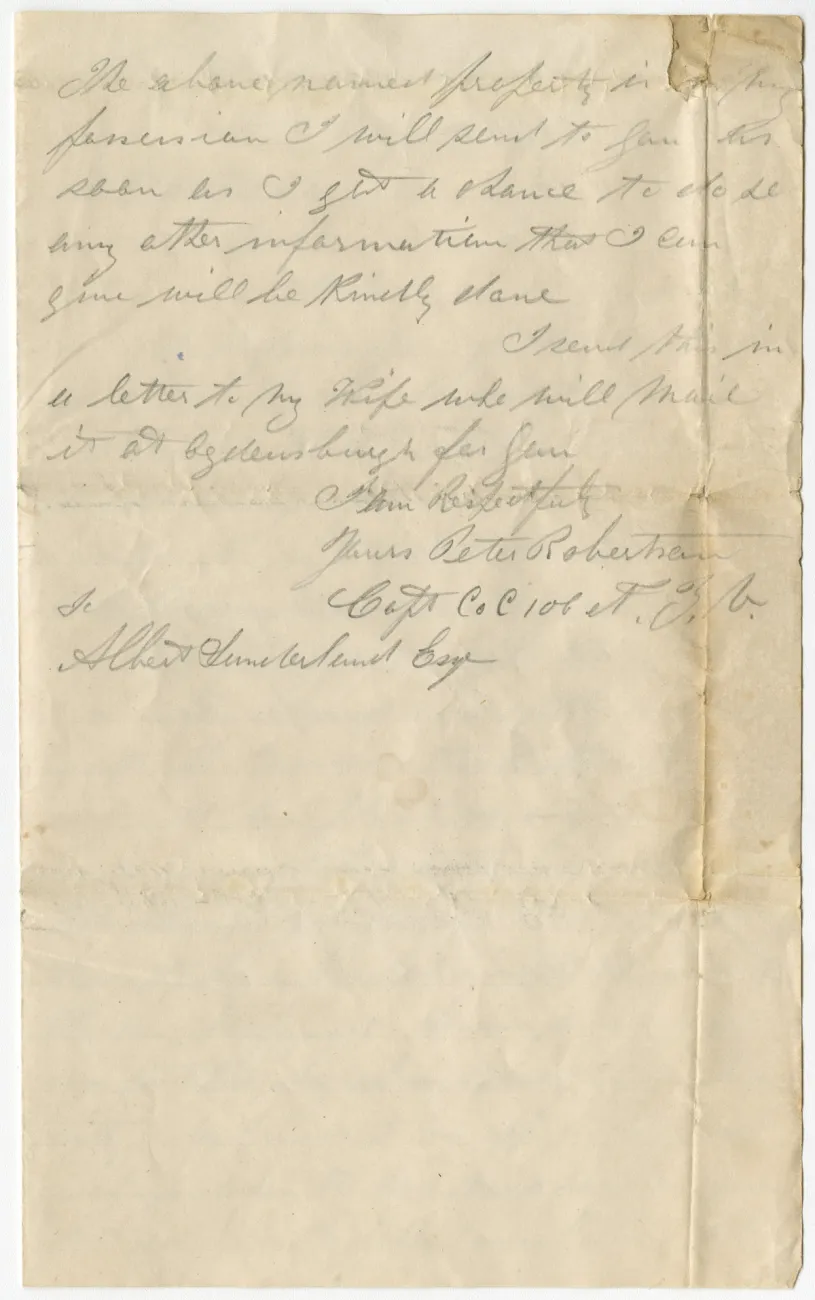 The above named property is in my
possession I will send to you as
soon as I get a chance to do so
any other information that I can
give will be kindly done
I send this in
a letter to my Wife who will Mail
it at Ogdensburgh for you
I am Respectfully
Yours Peter Robertson
Capt Co C 106 N. Y. V.
To
Albert Sunderland Esqr